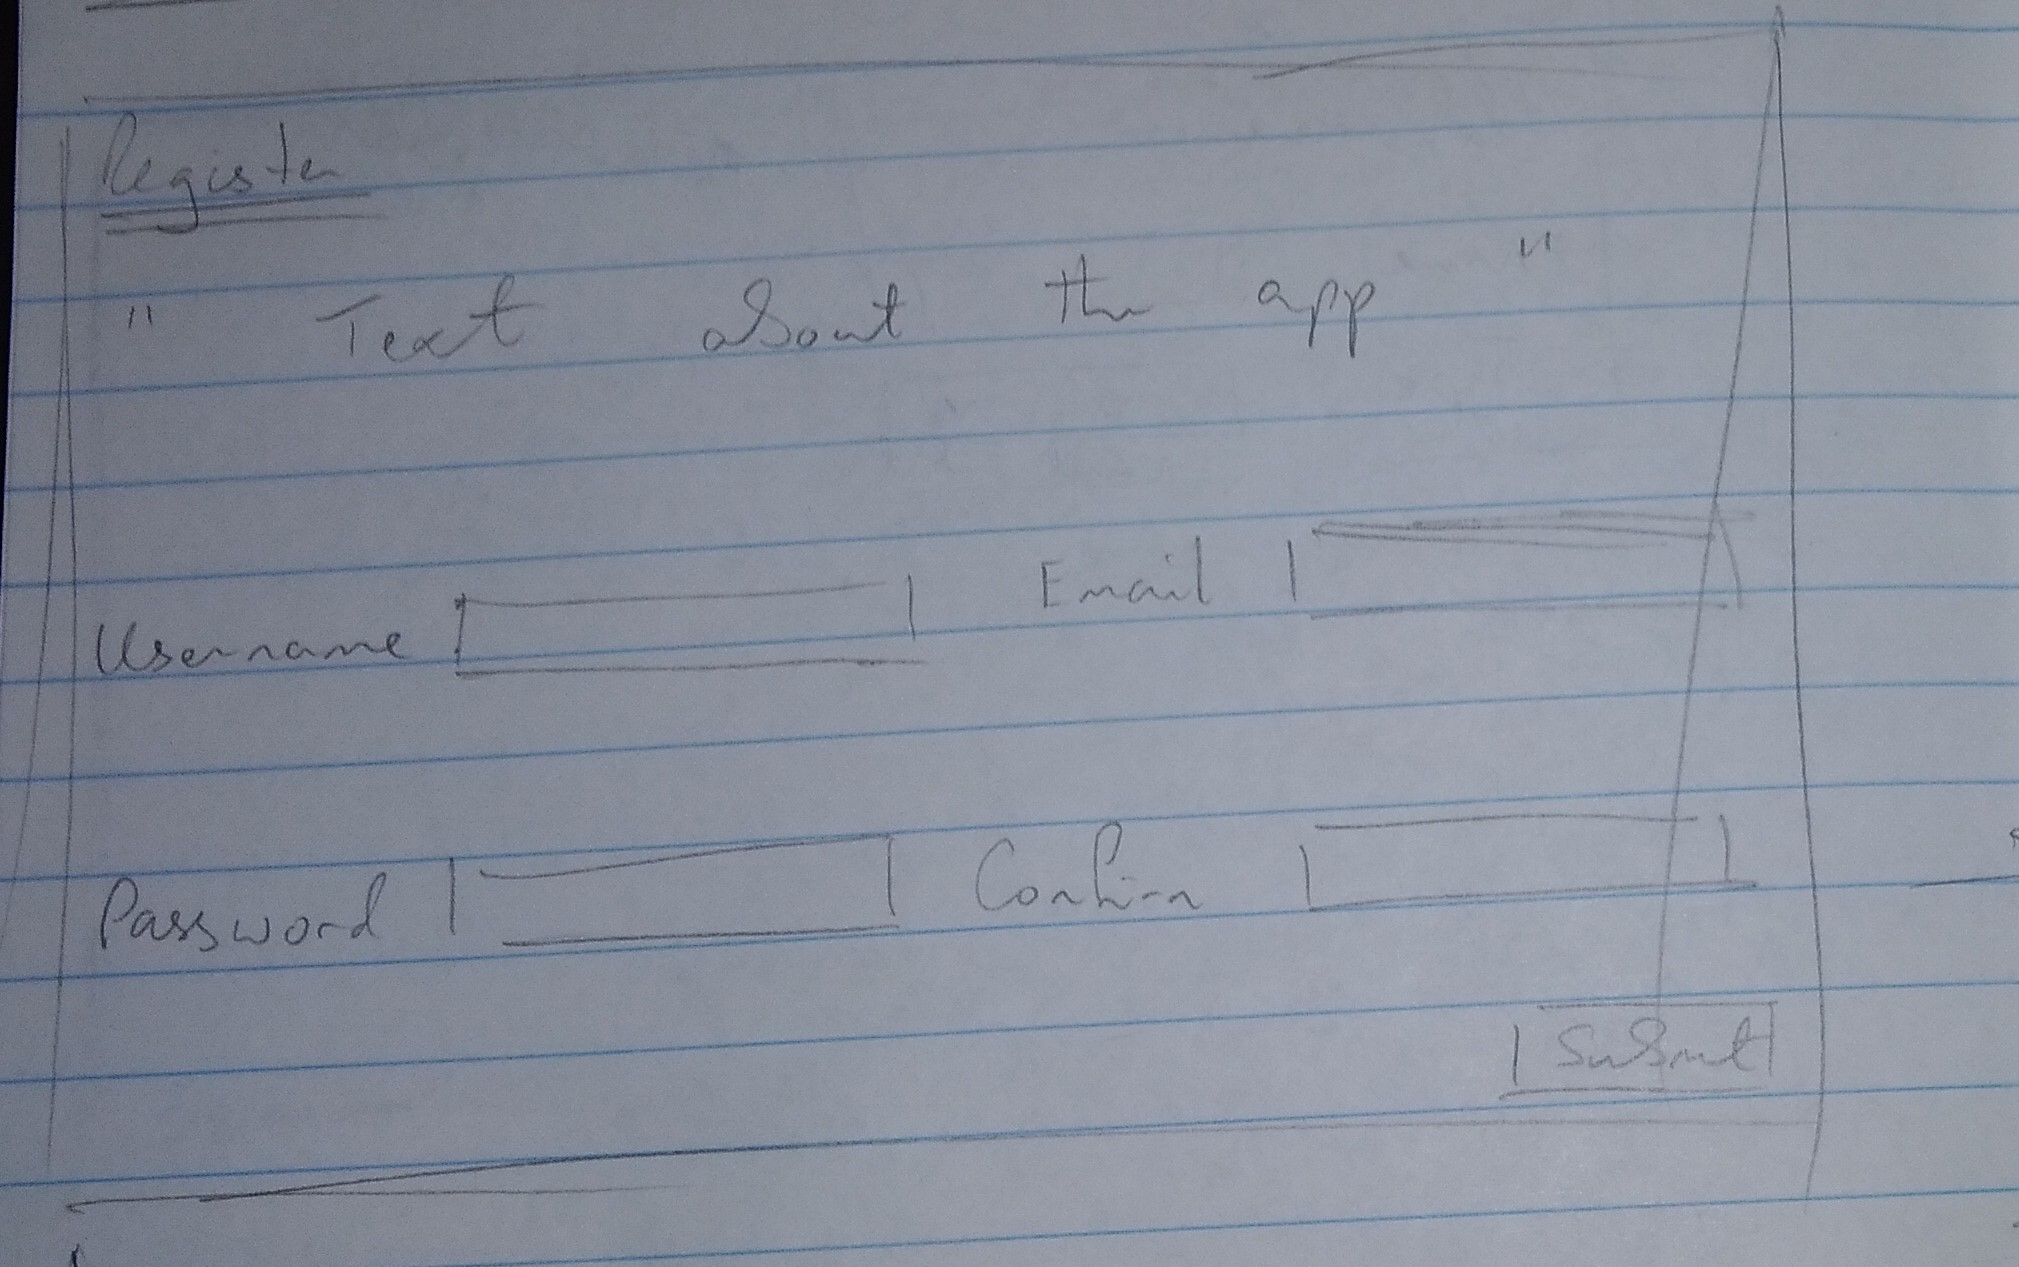 Register
" Text about the app "
Username Email
Password Confirm
Submit